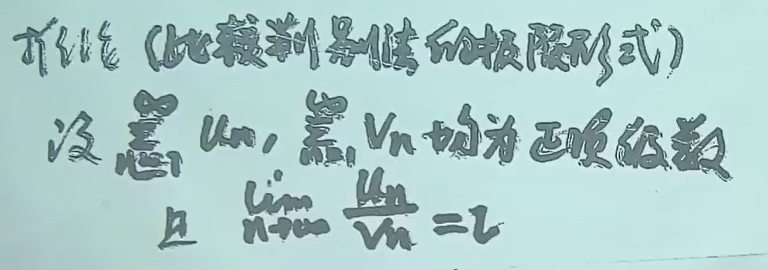 推论 (比较判别法的极限形式)
设 ∑_{n=1}^{∞} u_n, ∑_{n=1}^{∞} v_n 均为正项级数
且 lim_{n→∞} u_n/v_n = l